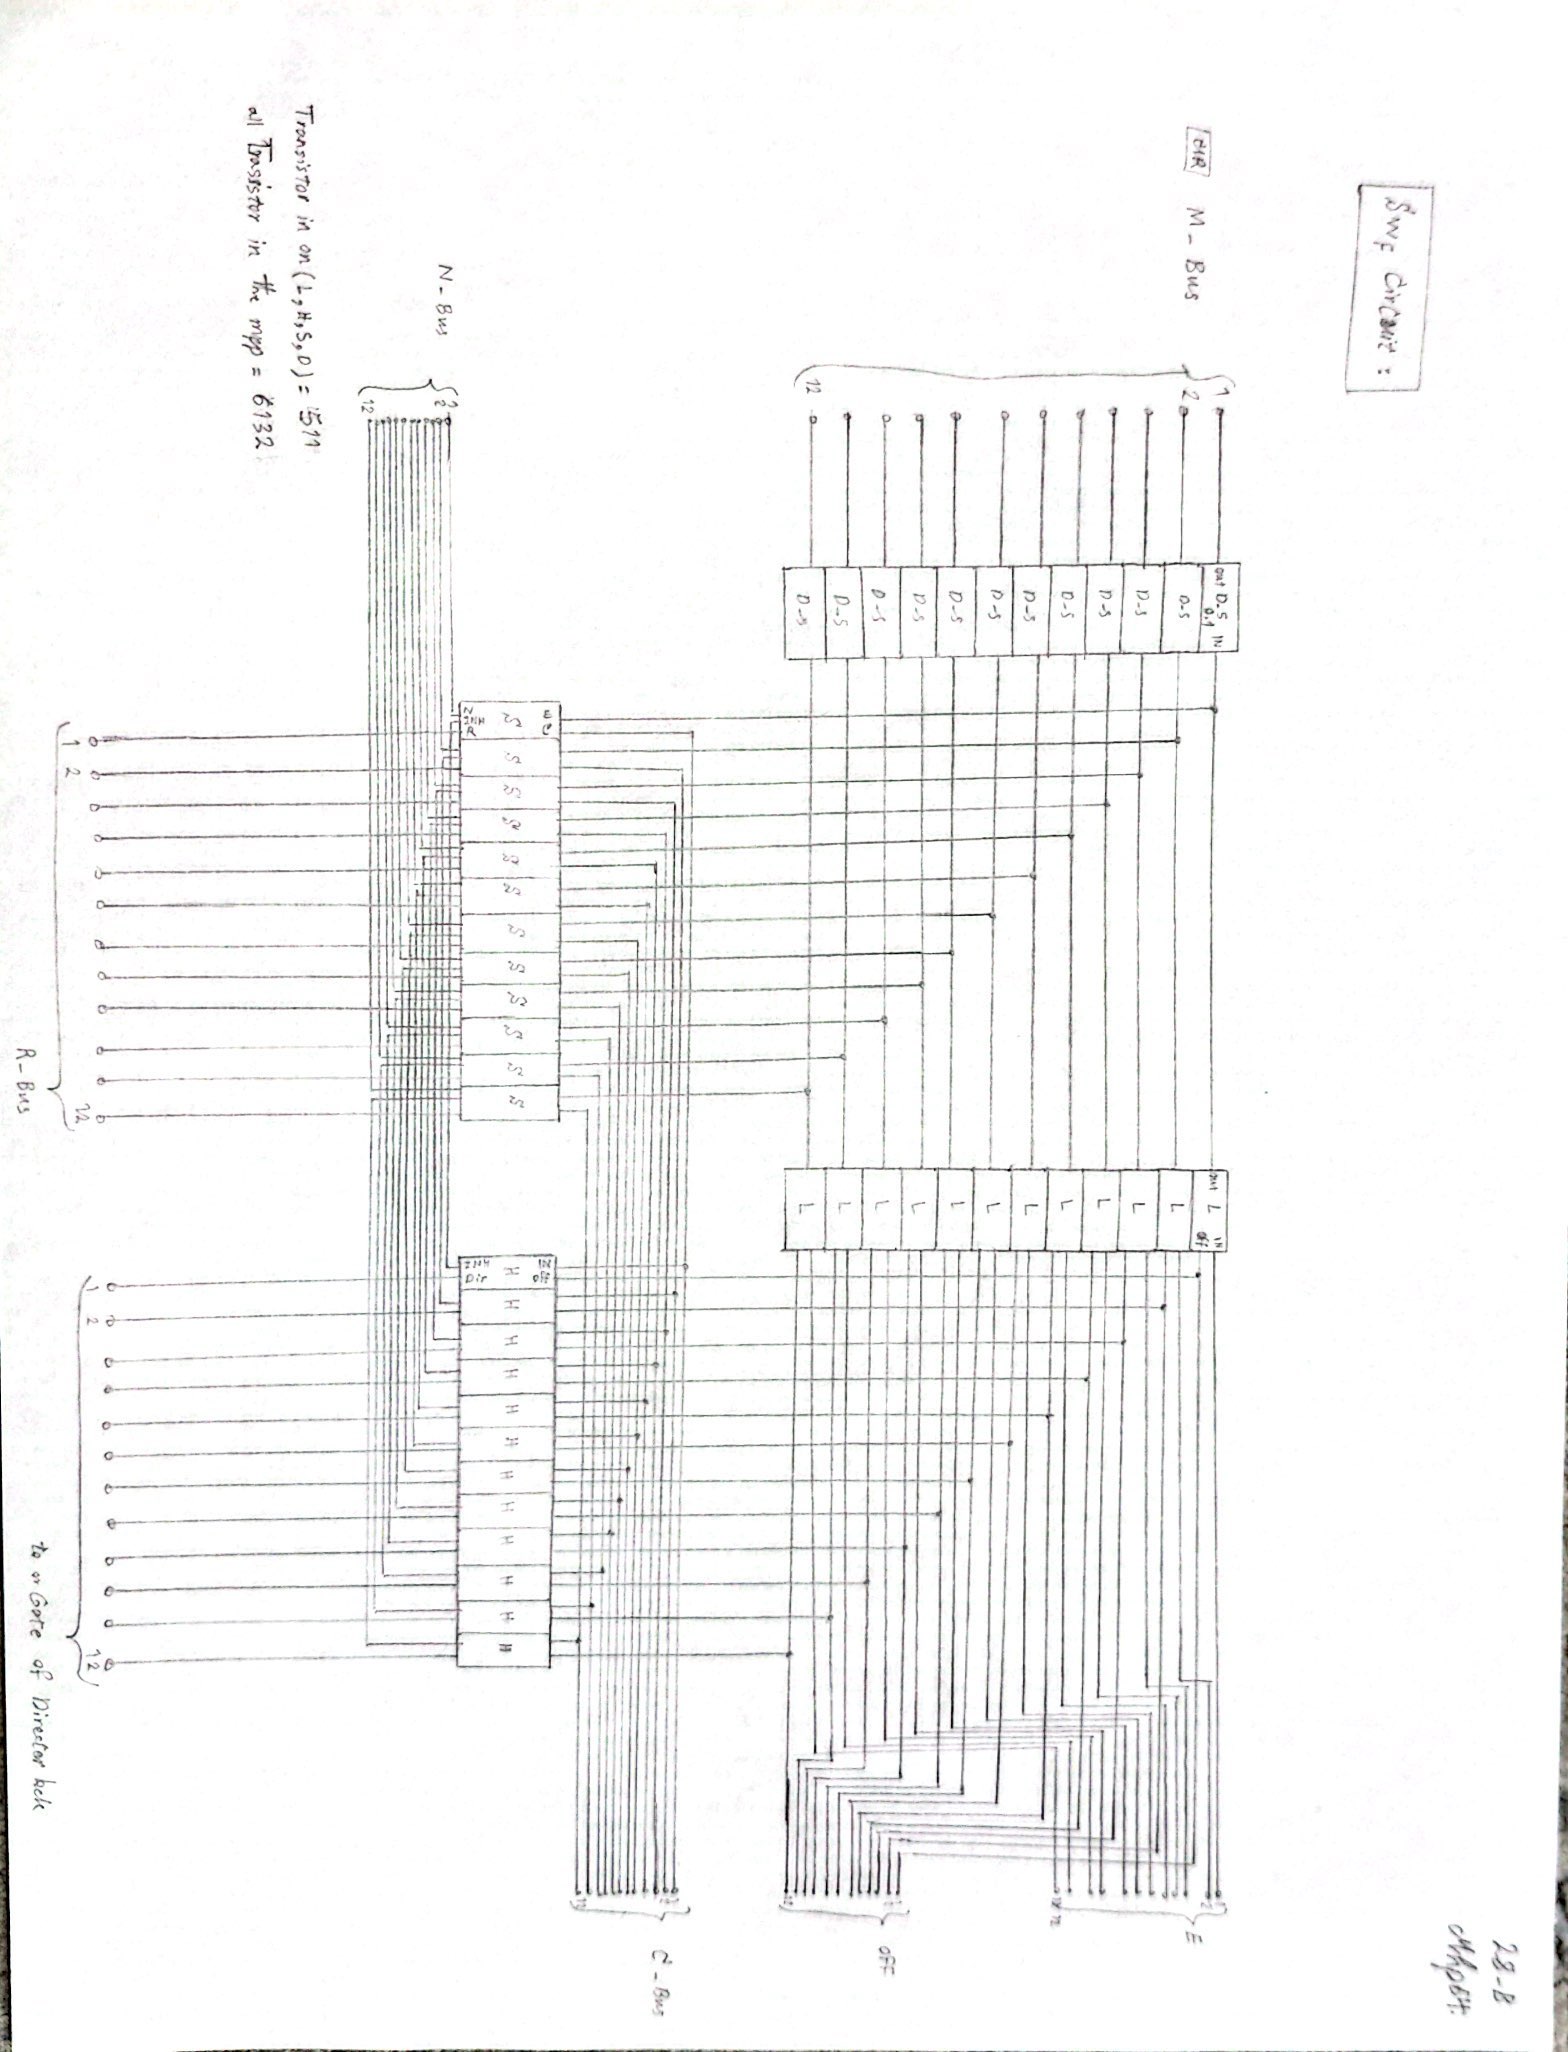 28-B
Mhp64.
SWF Circuit :
DIR M - Bus
1
2
12
out D-S IN
0.1
D-S
D-S
D-S
D-S
D-S
D-S
D-S
D-S
D-S
D-S
D-S
out L IN
off
L
L
L
L
L
L
L
L
L
L
L
E
12
OFF
12
C - Bus
E C
S S S S S S S S S S S S
N INH R
IN off
H H H H H H H H H H H H
INH Dir
N - Bus
2
12
Transistor in on (L,H,S,D) = 511
all Trasistor in the mpp = 6132
1 2 12
R - Bus
1 2 12
to or Gate of Director bck